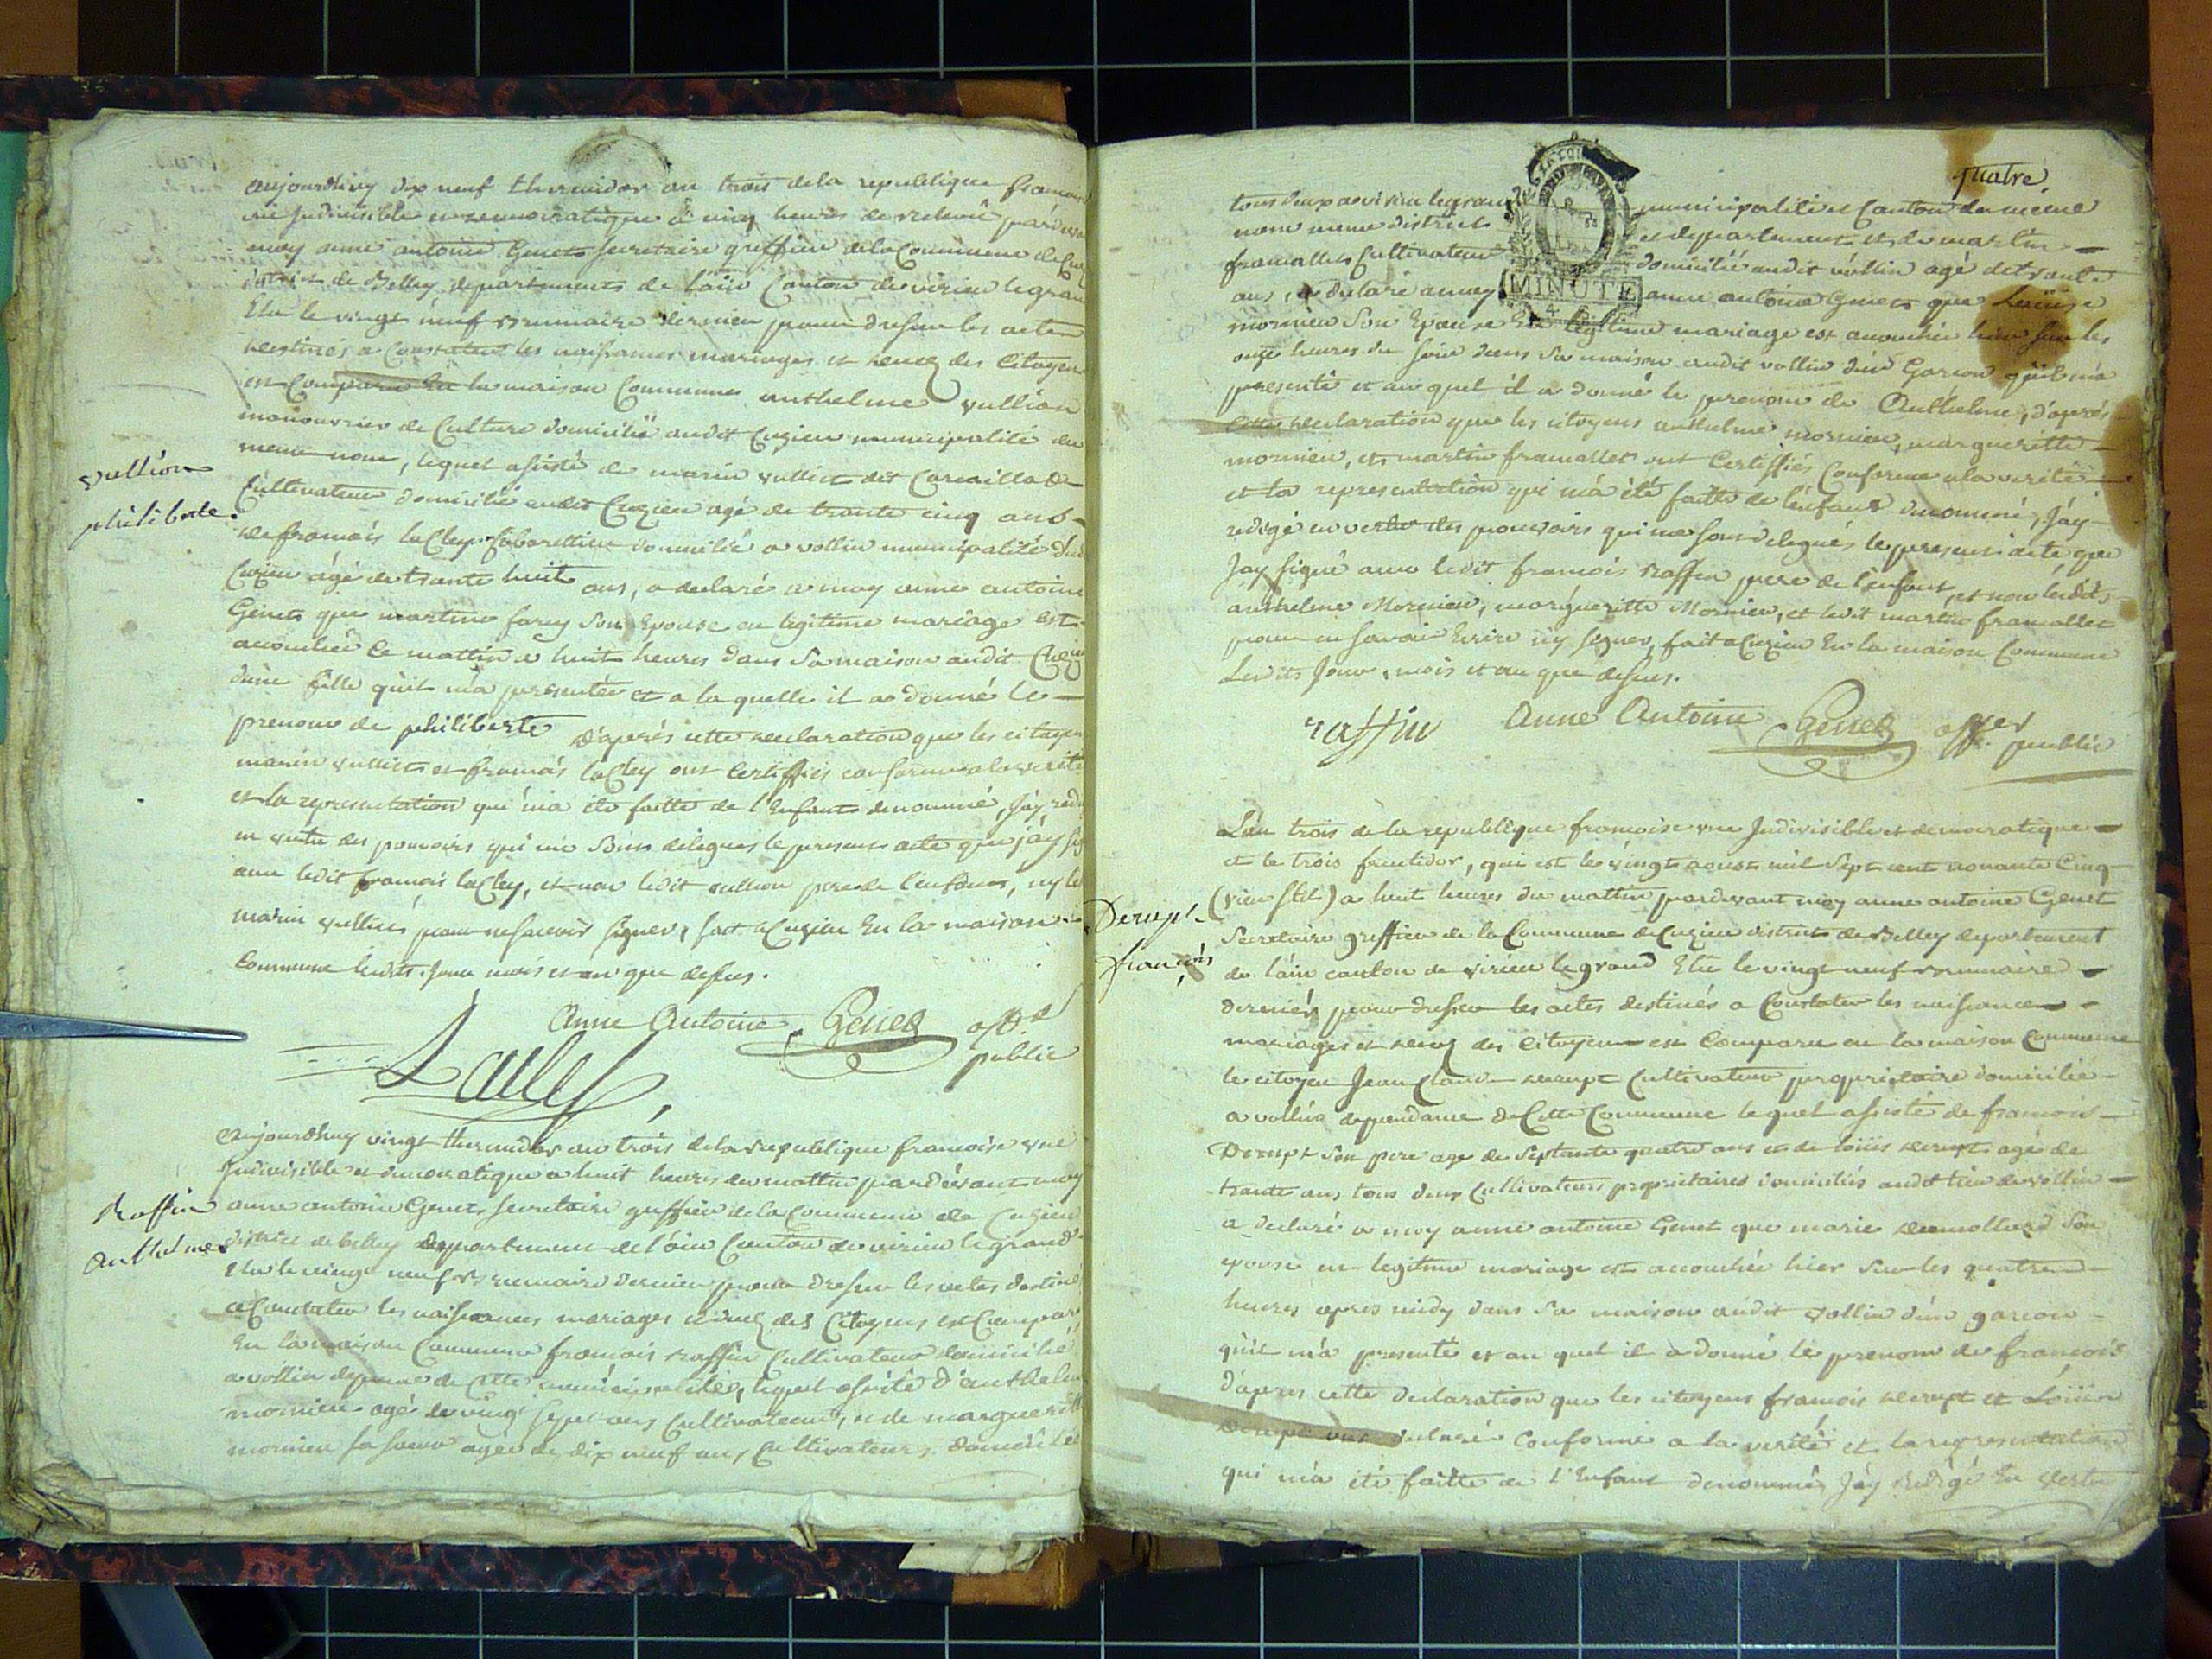 aujourdhuy dix neuf thermidor an trois de la republique francoise
une Indivisible et democratique a cinq heures de relevé pardevant
moy anne antoine Genet secretaire greffier de la Commune de Cuzieu
district de Belley departement de l'ain Canton de virieu le grand
Elu le vingt neuf brumaire dernier pour dresser les actes
destinés a Constater les naissances mariages et deces des Citoyens
est Comparu En la maison Commune anthelme vullion
manouvrier de Culture domicilié audit Cuzieu municipalité du
meme nom, lequel assisté de marin vulliet dit
Cultivateur domicilié audit Cuzieu agé de trante cinq ans
de francois lacley domicilié a vollin municipalité dud
Cuzieu agé de trante huit ans, a declaré a moy anne antoine
Genet que martine farcy son Epouse en legitime mariage est
accouchée Ce mattin a huit heures dans sa maison audit Cuzieu
dune fille quil m'a presentée et a la quelle il a donné le
prenom de philiberte d'apres cette declaration que les citoyens
marin vulliet et francois lacley ont Certiffiés conforme a la verité
et la representation qui m'a ete faitte de l'Enfant denommé, Jay redigé
en vertu des pouvoirs qui me sons delegués le present acte que jay signé
avec ledit francois lacley, et non ledit vullion pere de l'enfant, ny led
marin vulliet pour ne scavoir signer, fait a Cuzieu En la maison
Commune lesdits Jour mois et an que dessus.
vullion
philiberte.
Anne Antoine Genet off.er
public
Lacley
Aujourdhuy vingt thermidor an trois de la republique francoise une
Indivisible et democratique a huit heures du mattin pardevant moy
anne antoine Genet secretaire greffier de la Commune de Cuzieu
district de belley departement de l'ain Canton de virieu le grand
Elu le vingt neuf brumaire dernier pour dresser les actes destinés
a Constater les naissances mariages et deces des Citoyens est Comparu
En la maison Commune francois Raffin Cultivateur domicilié
a vollin de Cette municipalité, lequel assisté d'anthelme
mornieu agé de vingt sept ans Cultivateur, et de margueritte
mornieu sa soeur agée de dix neuf ans, Cultivateurs domiciliés
Raffin
Anthelme
quatre.
tous deux a virieu le grand municipalité et Canton du meme
nom meme district et departement et de martin
framallet Cultivateur domicilié audit vollin agé de trante
ans, a declaré a moy anne antoine Genet que Louise
mornieu son Epouse En legitime mariage est accouchée hier sur les
onze heures du soir dans sa maison audit vollin d'un Garcon quil m'a
presenté et au quel il a donné le prenom de Anthelme, d'apres
Cette declaration que les citoyens anthelme mornieu, margueritte
mornieu, et martin framallet ont Certiffiés Conforme a la verité
et la representation qui m'a été faitte de l'enfant denommé, Jay
redigé en vertu des pouvoirs qui me sons delegués le present acte que
Jay signé avec ledit francois Raffin pere de l'enfant, et non lesdits
anthelme Mornieu, margueritte Mornieu, et ledit martin framallet
pour ne scavoir Ecrire ny signer, fait a Cuzieu En la maison Commune
Lesdits Jour, mois et an que dessus.
MINUTE
raffin Anne Antoine Genet off.er
public
L'an trois de la republique francoise une Indivisible et democratique
et le trois fructidor, qui est le vingt aoust mil sept cent nonante Cinq
(vieu stile) a huit heures du mattin pardevant moy anne antoine Genet
secretaire greffier de la Commune de Cuzieu district de Belley departement
de l'ain canton de virieu le grand Elu le vingt neuf brumaire
dernier pour dresser les actes destinés a Constater les naissances
mariages et deces des Citoyens est Comparu en la maison Commune
le citoyen Jean Claude derupt Cultivateur proprietaire domicilié
a vollin dependance de Cette Commune lequel assisté de francois
Derupt son pere agé de septante quatre ans et de loüis derupt agé de
trante ans tous deux Cultivateurs proprietaires domiciliés audit lieu de vollin
a declaré a moy anne antoine Genet que marie demollard son
epouse en legitime mariage est accouchée hier sur les quatre
heures apres midy dans sa maison audit vollin d'un garcon
qu'il m'a presenté et au quel il a donné le prenom de francois
d'apres cette declaration que les citoyens francois derupt et Loüis
derupt ont declaré conforme a la verité et la representation
qui m'a été faitte de l'Enfant denommé, Jay Redigé En vertu
Derupt
francois